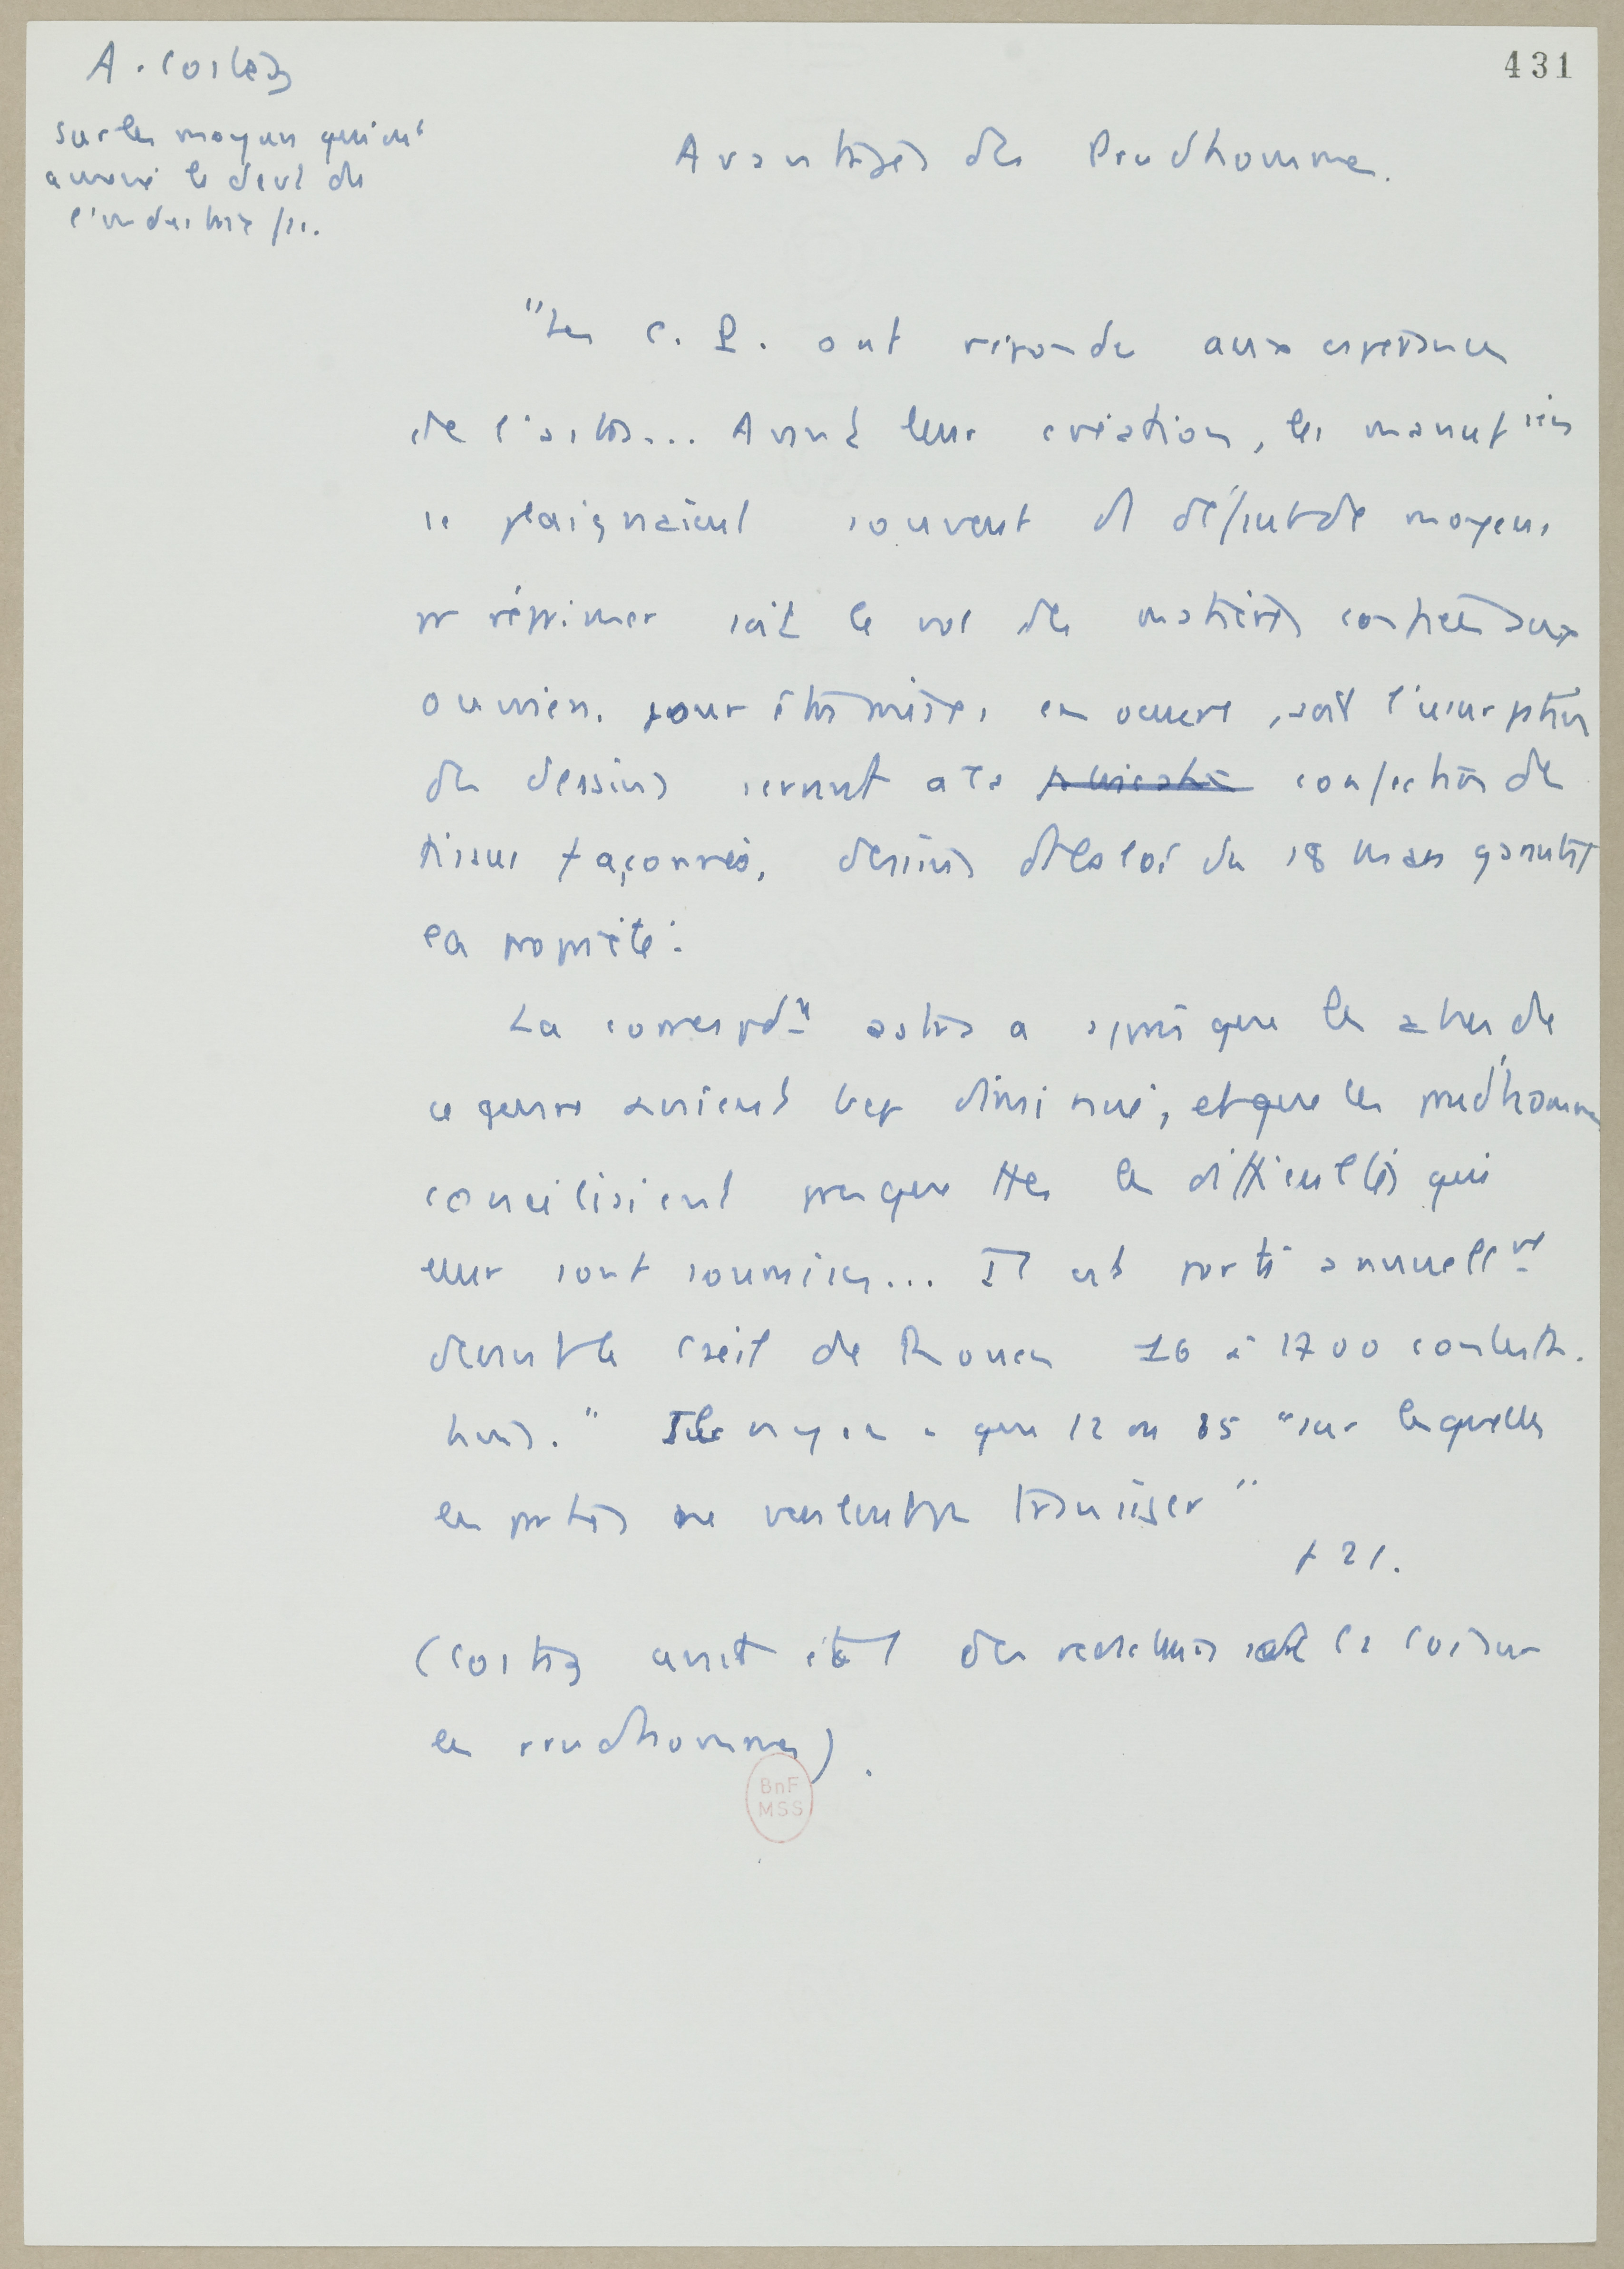 431
A. Costaz
sur les moyens qui ont
amené le devt de
l'industrie fse.
Avantages des Prudhomme.
"Les C. P. ont répondu aux espérances
de l'autor... Avant leur création, les manuf
se plaignaient souvent du défaut de moyens
pr réprimer soit le vol des matières confiées aux
ouvriers, pour être mises en oeuvre, soit l'usurption
des dessins servant à la confection de
tissus façonnés, dessins dt la loi du 18 mars garantit
la propriété.
La correspdce a appris que les abus de
ce genre avaient bcp diminué, et que les prud'hommes
conciliaient presque ttes les difficultés qui
leur sont soumises... Il est porté annuellt
devant le Cseil de Rouen 16 à 1700 contesta
tions." Il n'y en a que 12 ou 15 "sur lesquelles
les parties ne veulent pas transiger"
p 21.
(Costaz avait été des
les prudhommes).
BnF
MSS